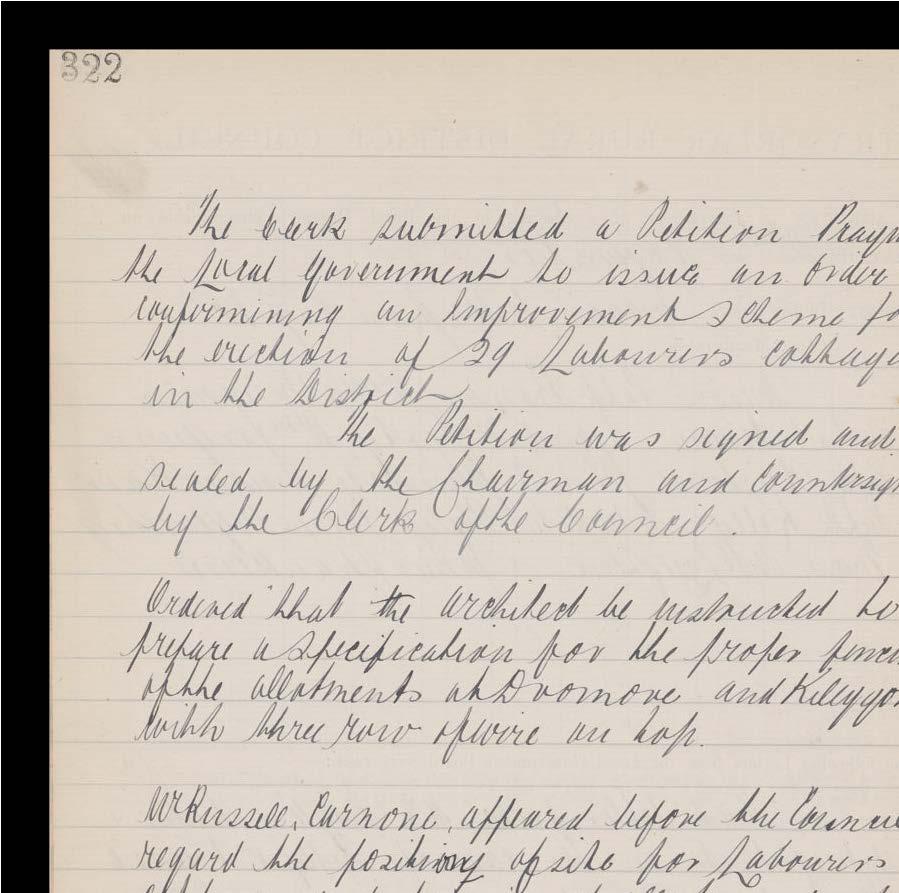 322
The Clerk submitted a Petition Prayin
the Local Government to issue an Order
confirmining an Improvement Scheme fo
the erection of 29 Labourers cottage
in the District
The Petition was signed and
sealed by the Chairman and Countersign
by the Clerk of the Council.
Ordered that the architect be instructed to
prepare a Specification for the proper fencin
of the allotments at Dromore and Killygor
with three row of wire on top.
Mr Russell, Carnone, appeared before the Counci
regard the position of site for Labourers